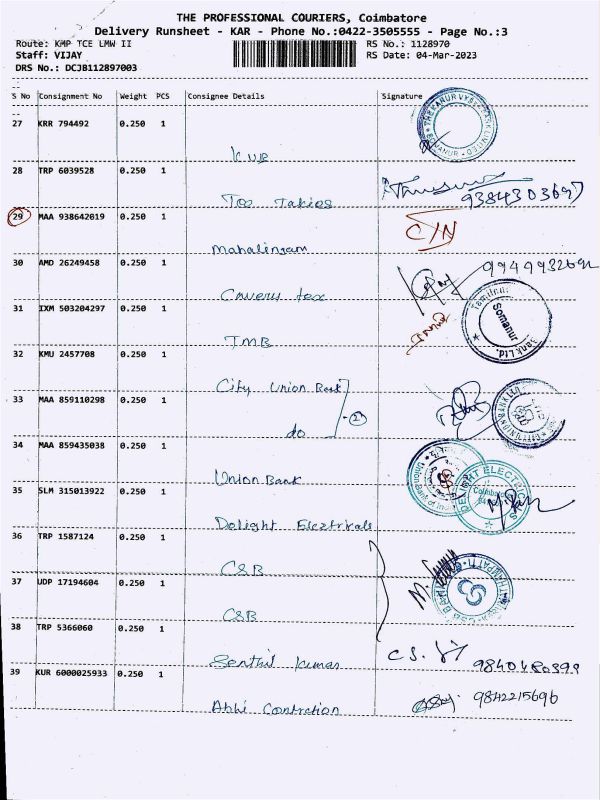 THE PROFESSIONAL COURIERS, Coimbatore
Delivery Runsheet - KAR - Phone No.:0422-3505555 - Page No.:3
Route: KMP TCE LMW II RS No.: 1128970
Staff: VIJAY RS Date: 04-Mar-2023
DRS No.: DCJB112897003
S No Consignment No Weight PCS Consignee Details Signature
27 KRR 794492 0.250 1
KVB
28 TRP 6039528 0.250 1
9384303697
29 MAA 938642019 0.250 1
Mahalingam
30 AMD 26249458 0.250 1
Cavery tex
31 IXM 503204297 0.250 1
Somanur
Bank Ltd.
TMB
32 KMU 2457708 0.250 1
City Union Bank
33 MAA 859110298 0.250 1
do
34 MAA 859435038 0.250 1
Union Bank
35 SLM 315013922 0.250 1
DELIGHT ELECTRICALS
Delight Elecztrikals
36 TRP 1587124 0.250 1
CSB
37 UDP 17194604 0.250 1
CSB
38 TRP 5366060 0.250 1
Senthil Kumar
39 KUR 6000025933 0.250 1
9842215696
Abhi Contrction